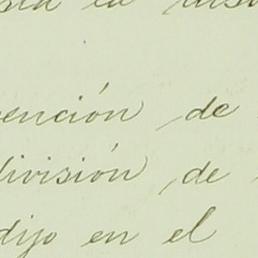 en
ención de
división de
dijo en el